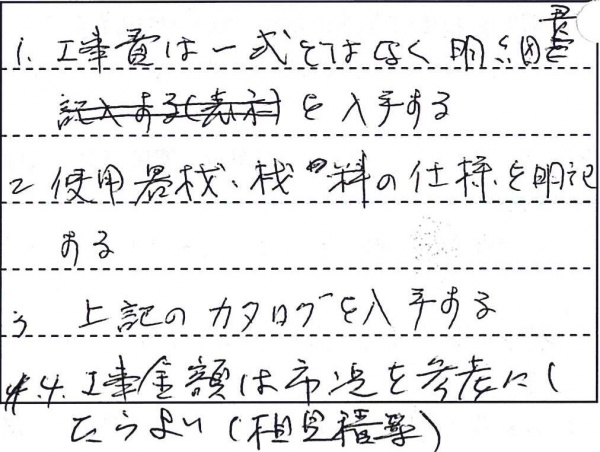 1. 工事費は一式ではなく明細書
記入する(表示)を入手する
2 使用器材、材料の仕様を明記
する
3 上記のカタログを入手する
4. 工事金額は市況を参考にし
たらよい(相見積要)